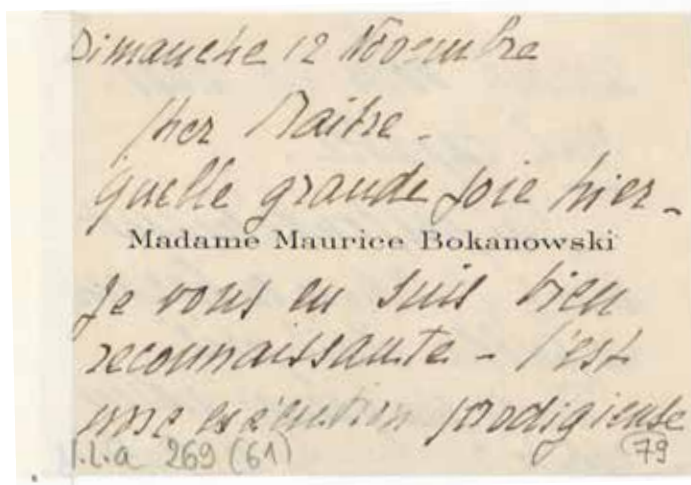 Dimanche 12 Novembre
Cher Maitre -
quelle grande joie hier -
Madame Maurice Bokanowski
Je vous en suis bien
reconnaissante - C'est
une exécution prodigieuse
l.L.a 269 (61)
79